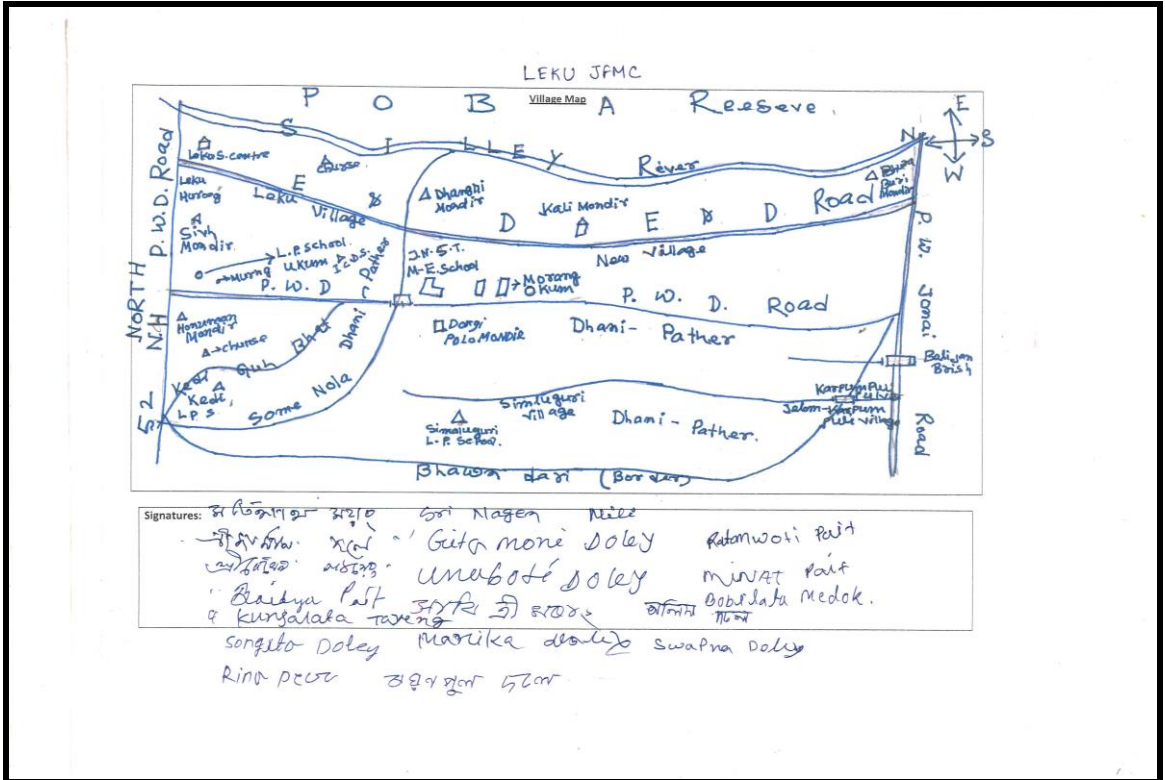 LEKU JFMC
Village Map
P O B A Reeseve.
E
N S
W
S I L L E Y River
P.W.D. Road
Leku S. centre
churse
Leku
Leku Village
Dhangni Mondir
Kali Mondir
E & D E & D Road
Buri Mondir
Sivh Mondir
L.P. School.
Murng Ukum I.C.D.S.
Pather
J.N.S.T. M-E. School
Morang Okum
New Village
P.W.D
P. W. D. Road
P. W. Jonai Road
NORTH
N.H
52
Honuman Mondir
churse
Kedi Guh Bhat
Dhani
Dongi Polo MONDIR
Dhani- Pather
Balijan Brish
Kedi L.P.S
Some Nola
Simluguri Village
Simaluguri L.P. School.
Dhani - Pather.
Karpumpuli
Jelom-Karpum Puli Village
Bhawn dari (Border)
Signatures:
Sri Nagen Mili
Gita moni Doley Ratanwoti Pait
Unaboti Doley MINAT Pait
Baidya Pait Bobilata Medok.
Kunjalata Tayeng
Songita Doley Manika Swapna Doley
Rina